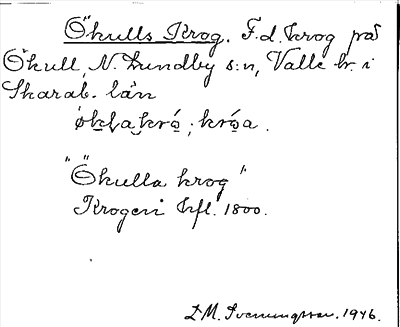 Ökulls Krog. F.d. krog på
Ökull, N. Lundby s:n, Valle hr. i
Skarab. län
økḷa kró̱ ; kró̱a .
"Ökulla krog"
Krogeri hfl. 1800.
D.M. Svenungsson. 1946.